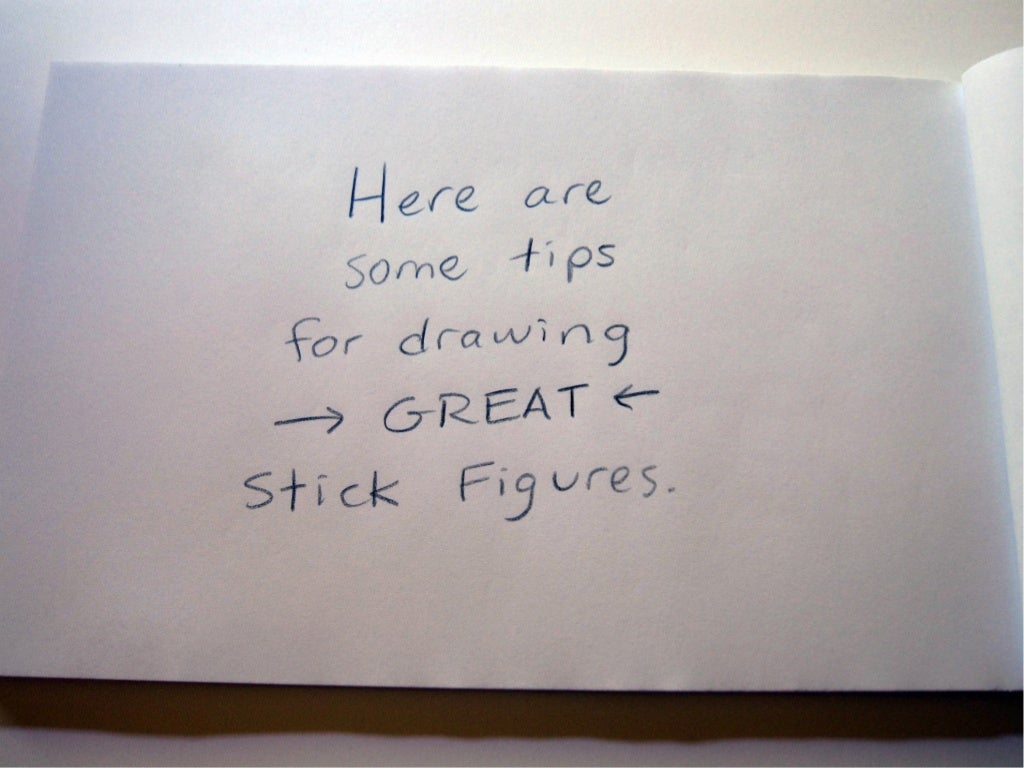 Here are
some tips
for drawing
→ GREAT ←
Stick Figures.